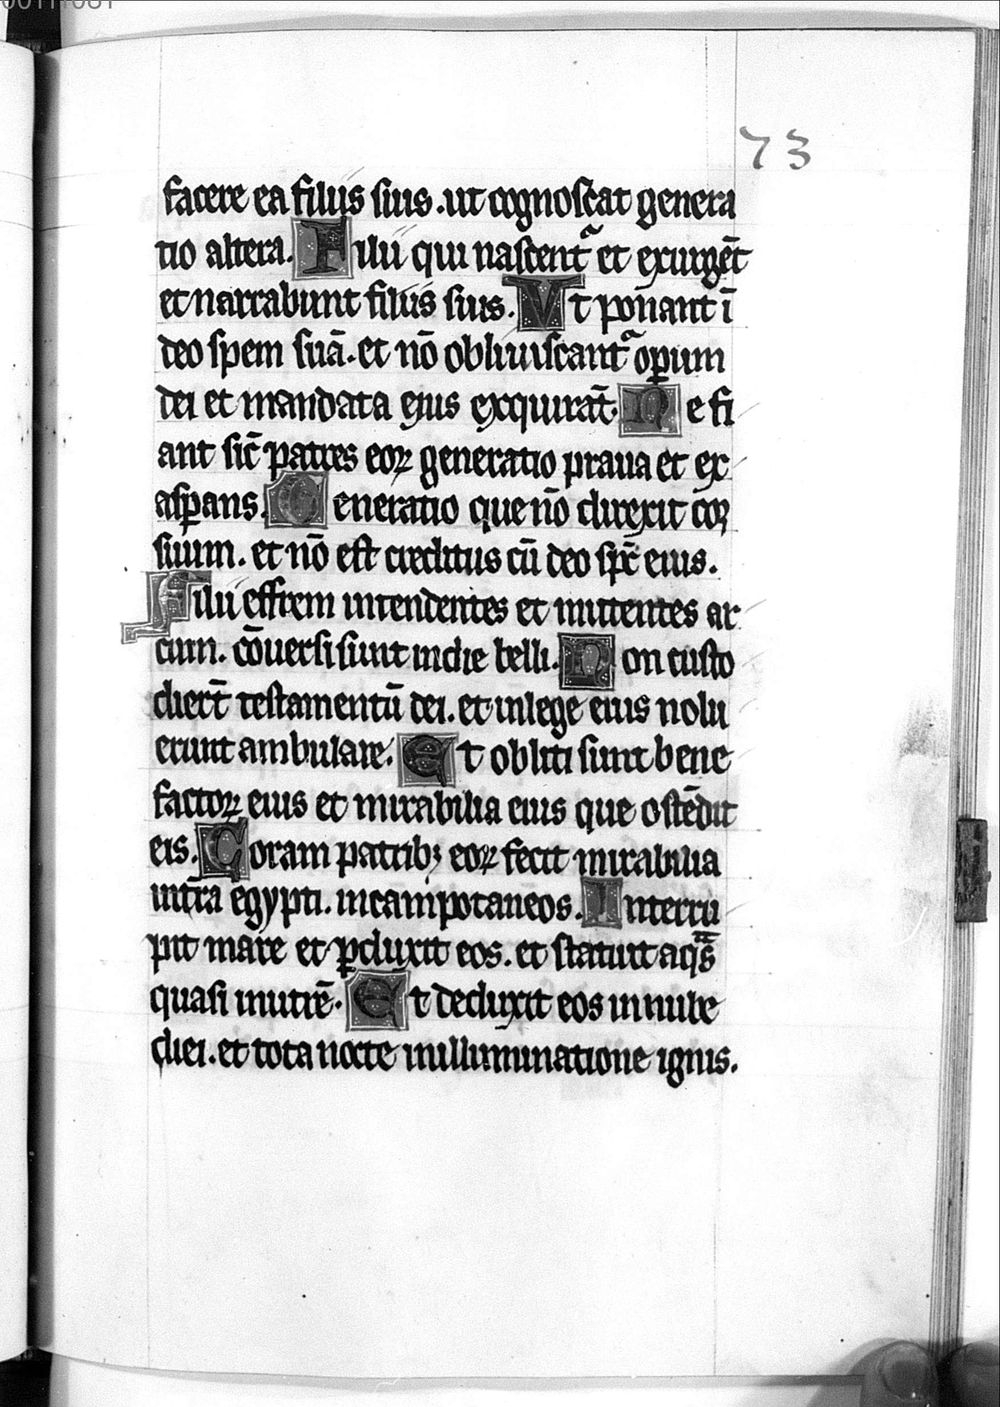 73
facere ea filiis suis. ut cognoscat genera
tio altera. Filii qui nascent᷑ et exurgēt
et narrabunt filiis suis. Vt ponant ī
deo spem suā. et nō obliuiscant᷑ oꝑum
dei et mandata eius exquirāt. Ne fi
ant sic̄ patres eoꝝ generatio praua et ex
asꝑans. Generatio que nō direxit cor
suum. et nō est creditus cū deo sp̄c eius.
Filii effrem intendentes et mittentes ar
cum. cōuersi sunt in die belli. Non custo
diert̄ testamentū dei. et in lege eius nolu
erunt ambulare. Et obliti sunt bene
factoꝝ eius et mirabilia eius que ostēdit
eis. Coram patribꝫ eoꝝ fecit mirabilia
in tr̄a egypti. in cāmpo taneos. Interru
pit mare et ꝑduxit eos. et statuit aqᷓs
quasi in utrē. Et deduxit eos in nube
diei. et tota nocte in illuminatione ignis.